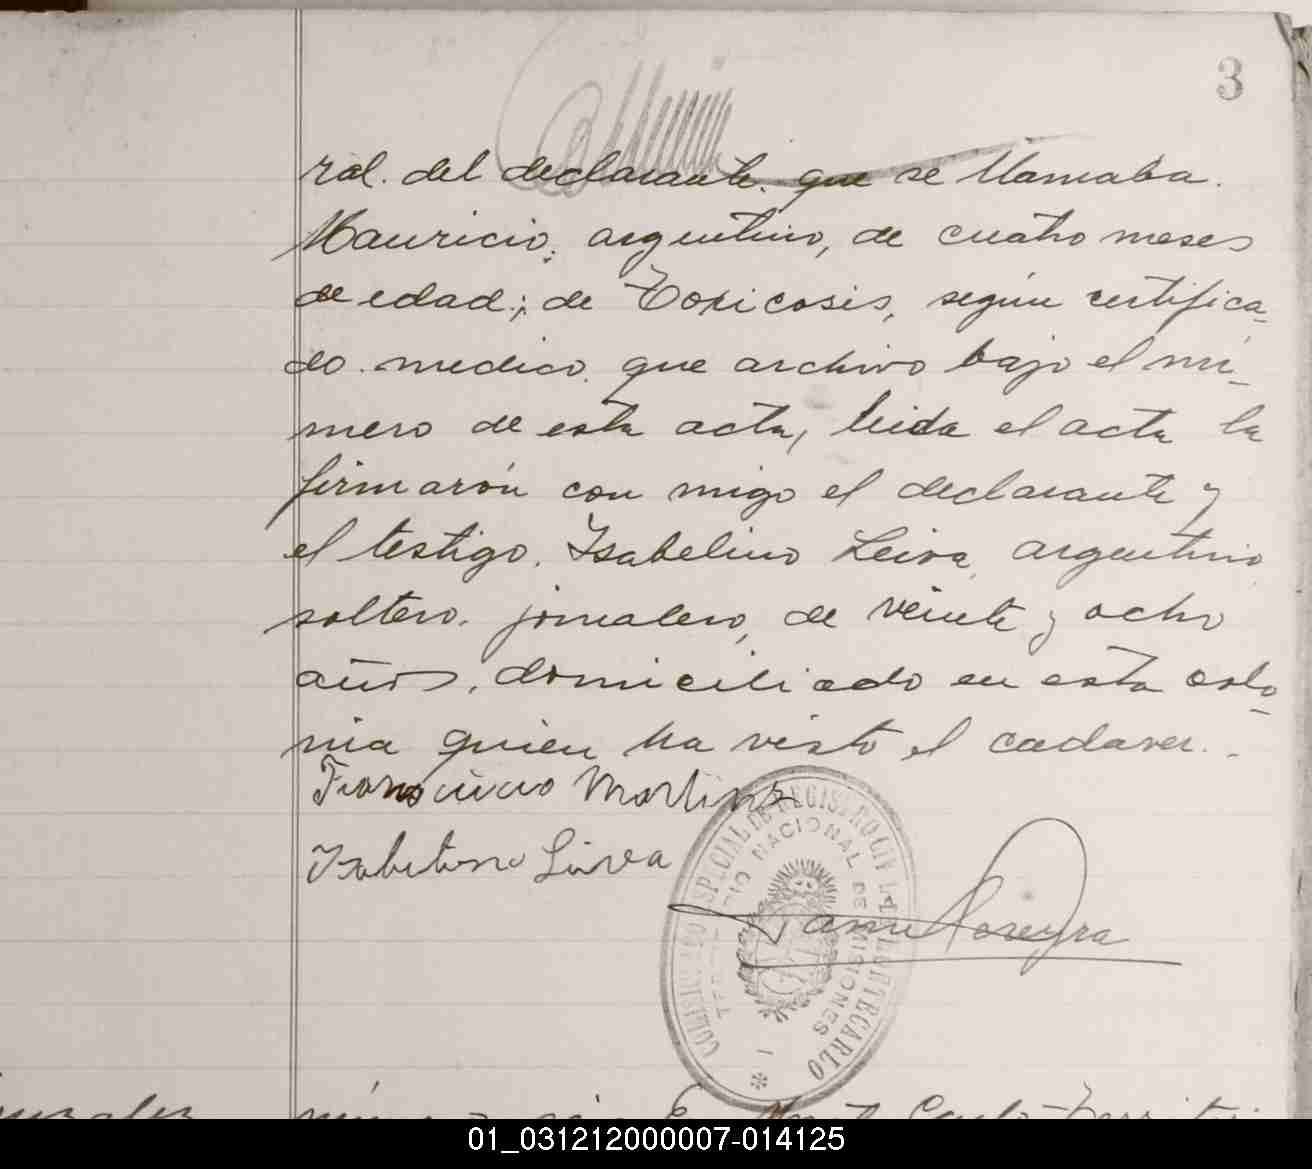 3
ral. del declarante. que se llamaba.
Mauricio; argentino, de cuatro meses
de edad; de Toxicosis, según certifica-
do. medico. que archivo bajo el nú-
mero de esta acta, leida el acta la
firmarón con migo el declarante y
el testigo. Isabelino Leiva, argentino
soltero. jornalero, de veinte y ocho
años, domiciliado en esta colo-
nia quien ha visto el cadaver. -
Martinz
Leiva
REGISTRO CIVIL MONTECARLO
NACIONAL DE MISIONES
1
Pereyra
01_031212000007-014125